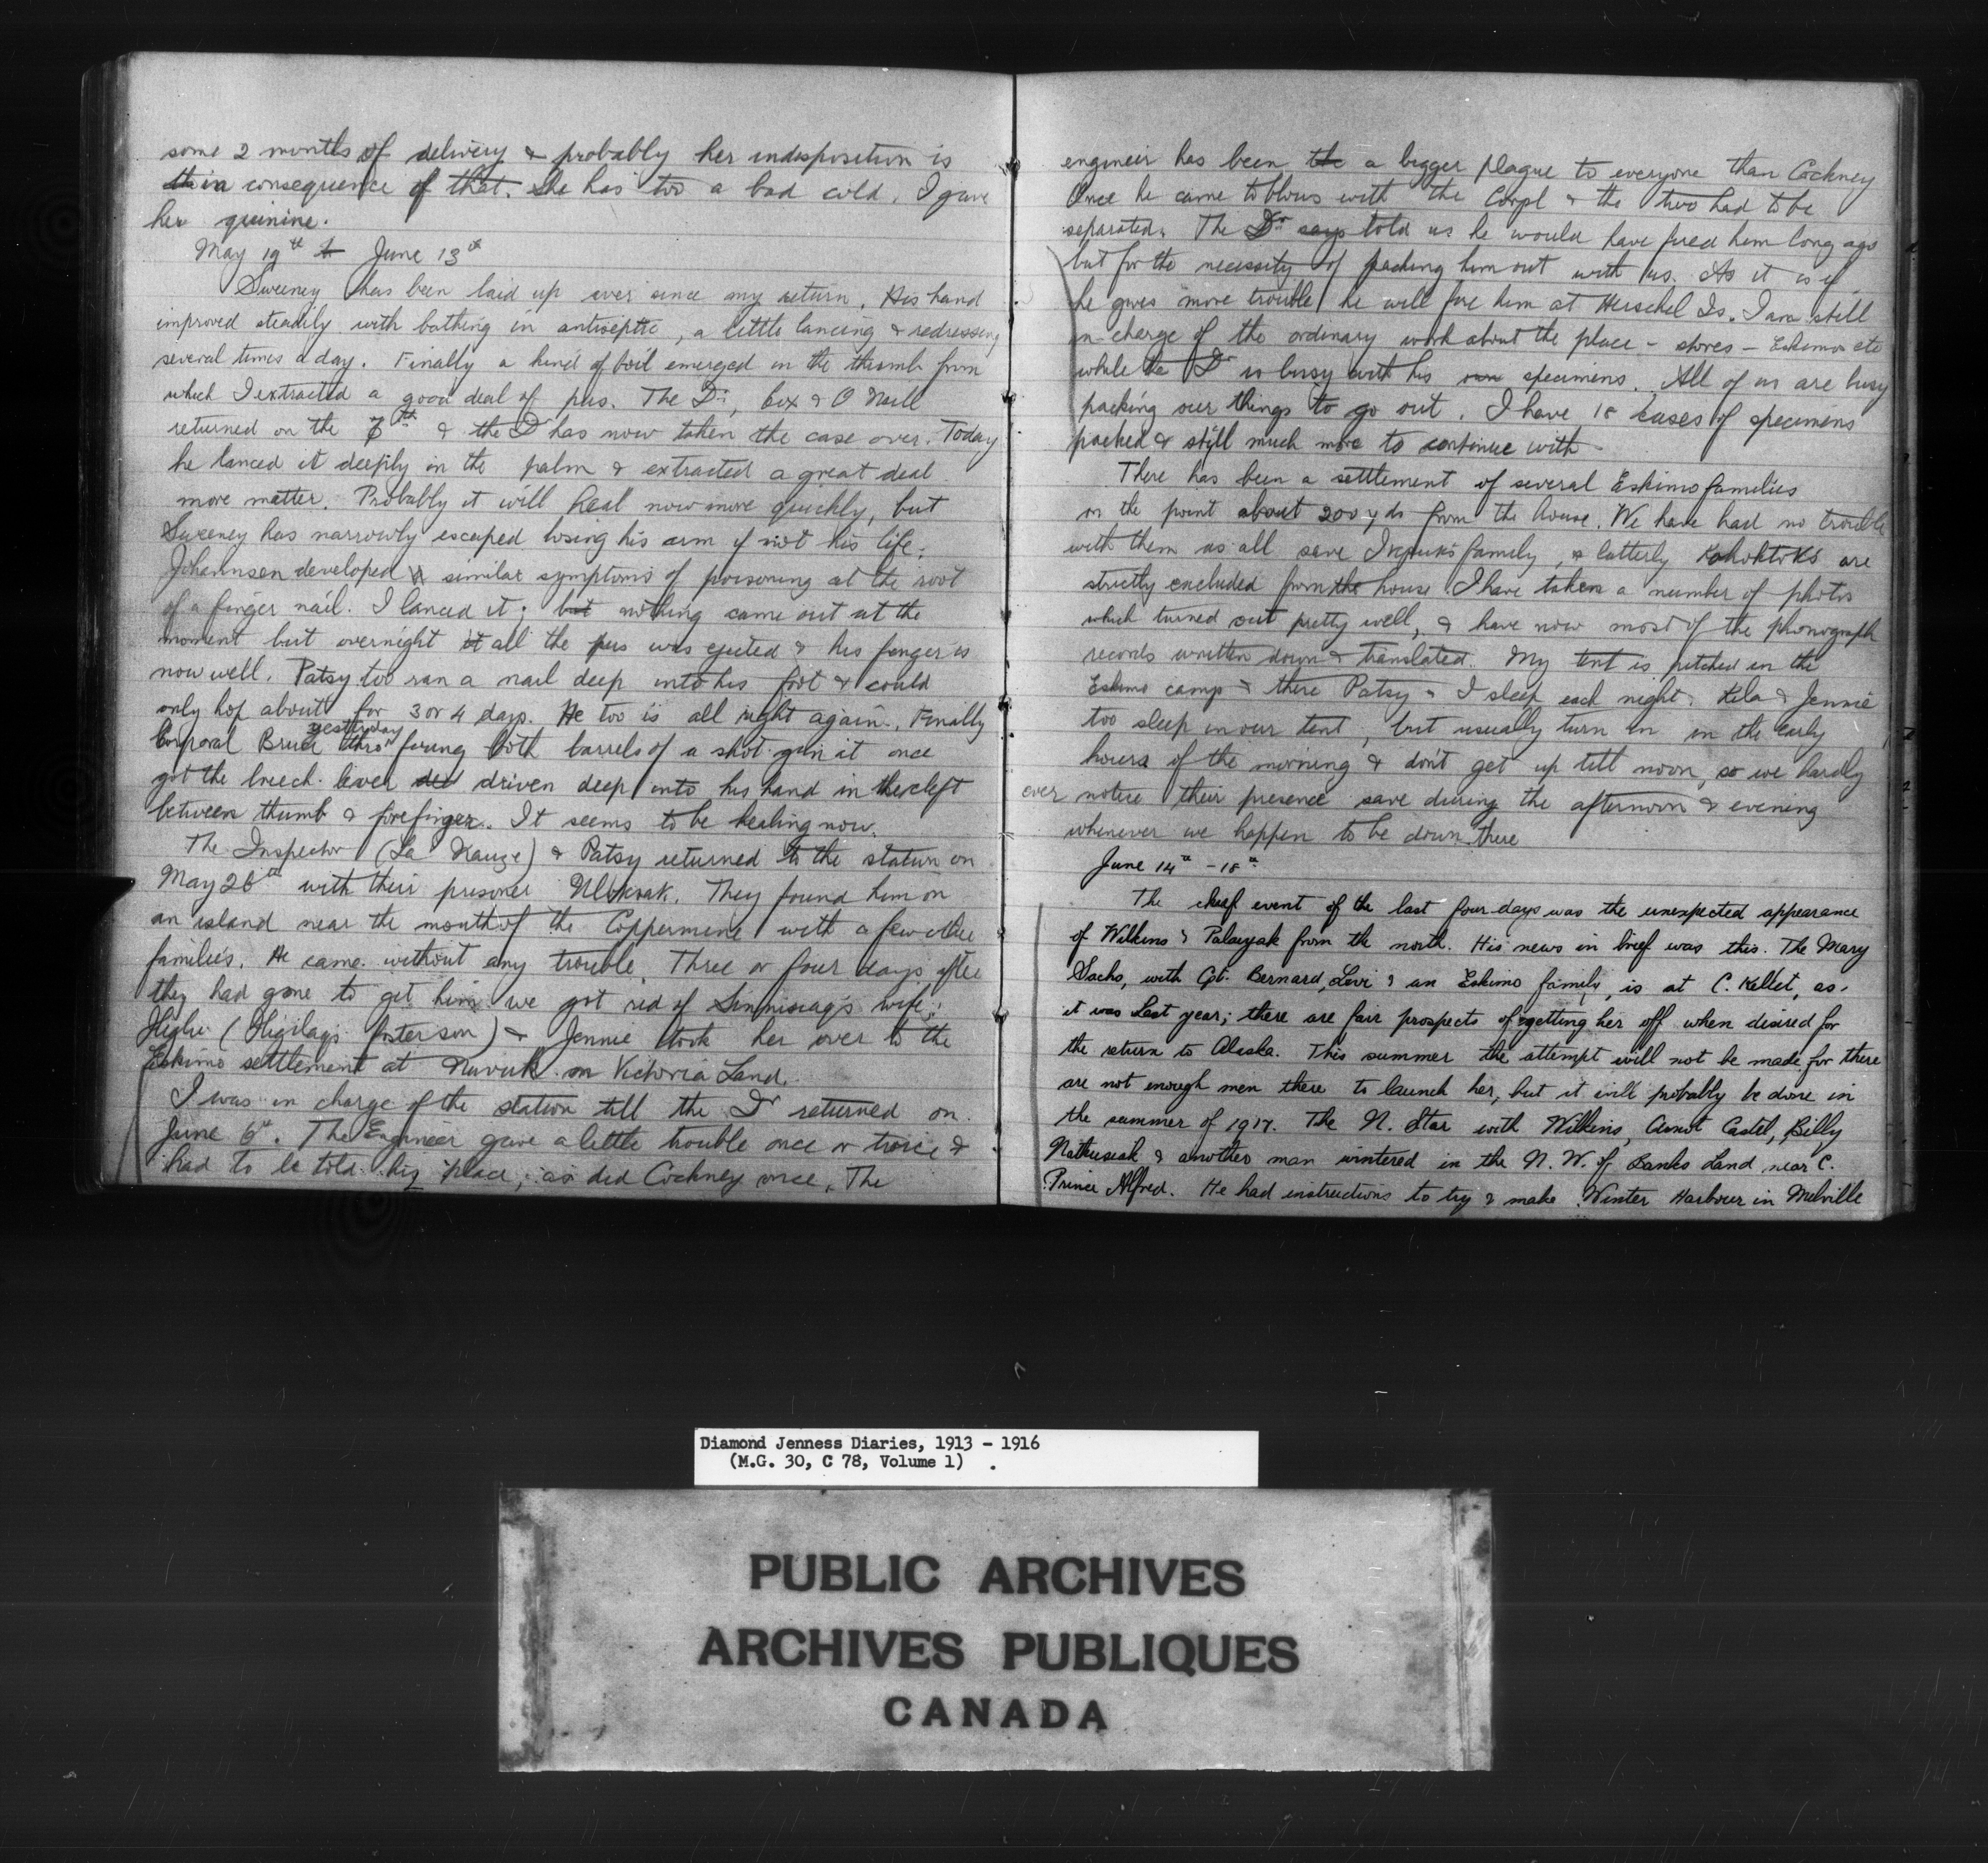 some 2 months of delivery & probably her indisposition is
in consequence of that. She has too a bad cold. I gave
her quinine.
May 19th to June 13th
Sweeney has been laid up ever since my return. His hand
improved steadily with bathing in antiseptic, a little lancing & redressing
several times a day. Finally a kind of boil emerged in the thumb from
which I extracted a good deal of pus. The Dr, Cox & O Neill
returned on the 7th & the Dr has now taken the case over. Today
he lanced it deeply in the palm & extracted a great deal
more matter. Probably it will heal now more quickly, but
Sweeney has narrowly escaped losing his arm if not his life.
Johannsen developed similar symptoms of poisoning at the root
of a finger nail. I lanced it; but nothing came out at the
moment but overnight it all the pus was ejected & his finger is
now well. Patsy too ran a nail deep into his foot & could
only hop about for 3 or 4 days. He too is all right again. Finally
Corporal Bruce yesterday thro' firing both barrels of a shot gun at once
got the breech lever driven deep into his hand in the cleft
between thumb & forefinger. It seems to be healing now.
The Inspector (La Nauze) & Patsy returned to the station on
May 26th with their prisoner Uloksak. They found him on
an island near the mouth of the Coppermine with a few other
families. He came without any trouble. Three or four days after
they had gone to get him we got rid of Sinnisiag's wife;
Haqungaq (Higilaq's foster son) & Jennie took her over to the
Eskimo settlement at Nuvuk in Victoria Land.
I was in charge of the station till the Dr returned on
June 6th. The Engineer gave a little trouble once or twice &
had to be told his place, as did Cockney once. The
engineer has been the a bigger plague to everyone than Cockney
Once he came to blows with the Corpl & the two had to be
separated. The Dr says told us he would have fired him long ago
but for the necessity of packing him out with us. As it is if
he gives more trouble he will fire him at Herschel Is. I am still
in charge of the ordinary work about the place - stores - Eskimos etc
while the Dr is busy with his own specimens. All of us are busy
packing our things to go out. I have 18 cases of specimens
packed & still much more to continue with.
There has been a settlement of several Eskimo families
on the point about 200 yds from the house. We have had no trouble
with them as all save Ikpuk's family, & latterly Kohoktok's are
strictly excluded from the house. I have taken a number of photos
which turned out pretty well, & have now most of the phonograph
records written down & translated. My tent is pitched in the
Eskimo camp & there Patsy & I sleep each night. Kila & Jennie
too sleep in our tent, but usually turn in in the early
hours of the morning & don't get up till noon, so we hardly
ever notice their presence save during the afternoon & evening
whenever we happen to be down there
June 14th - 18th
The chief event of the last four days was the unexpected appearance
of Wilkins & Palaiyak from the north. His news in brief was this. The Mary
Sachs, with Cpt. Bernard, Levi & an Eskimo family, is at C. Kellet, as
it was last year; there are fair prospects of getting her off when desired for
the return to Alaska. This summer the attempt will not be made for there
are not enough men there to launch her, but it will probably be done in
the summer of 1917. The N. Star with Wilkins, Aunot Castel, Billy
Natkusiak & another man wintered in the N.W. of Banks Land near C.
Prince Alfred. He had instructions to try & make Winter Harbour in Melville
Diamond Jenness Diaries, 1913 - 1916
(M.G. 30, C 78, Volume 1)
PUBLIC ARCHIVES
ARCHIVES PUBLIQUES
CANADA